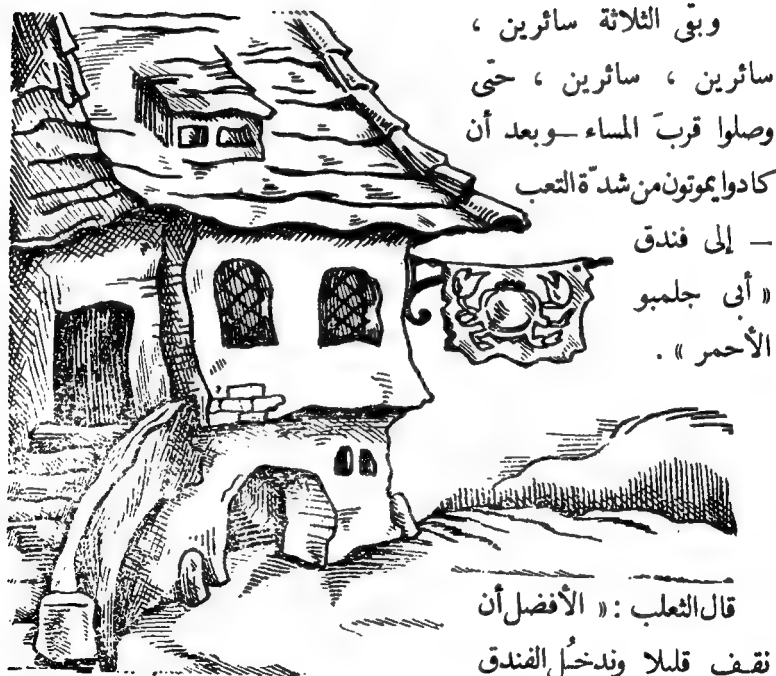 وبقى الثلاثة سائرين ،
سائرين ، سائرين ، حتى
وصلوا قربَ المساء – وبعد أن
كادوا يموتون من شدّة التعب
– إلى فندق
« أبى جلمبو
الأحمر » .
قال الثعلب : « الأفضل أن
نقف قليلا وندخُل الفندق